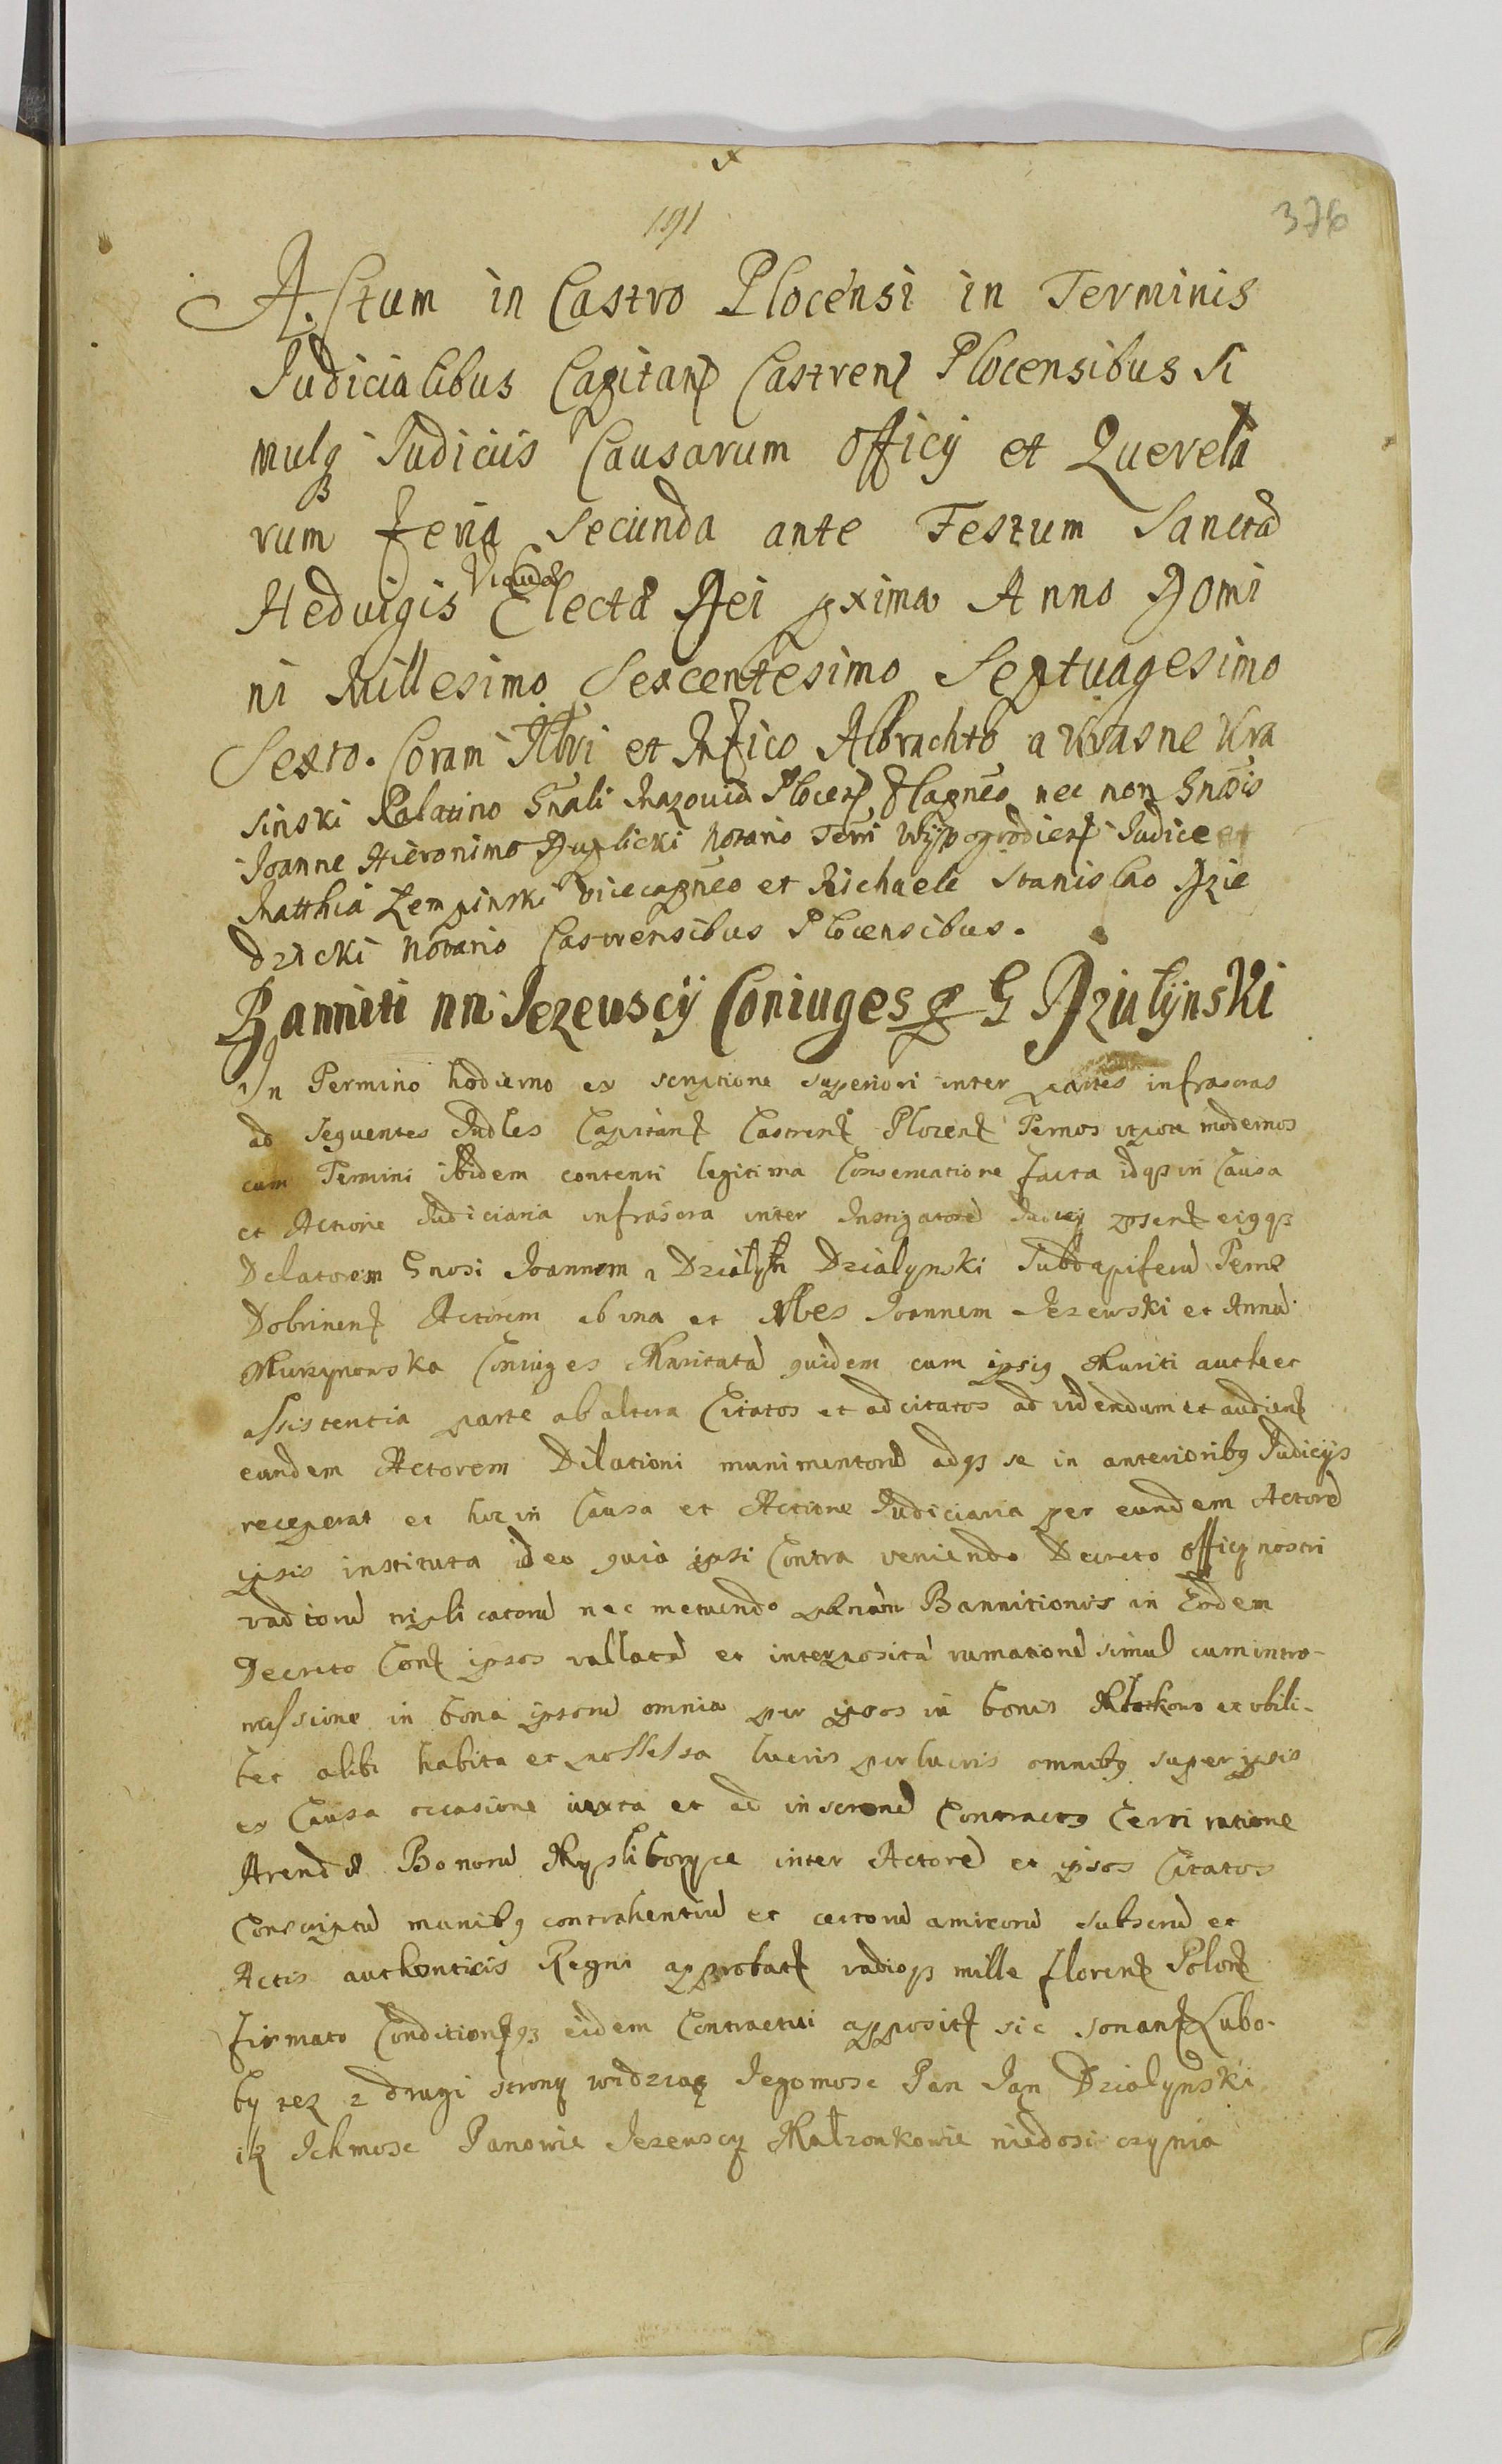 x
191
376
Actum in Castro Plocensi in Terminis
Judicialibus Capitan Castren Plocensibus Si
mulq Judiciis Causarum Officij et Querela
rum Feria Secunda ante Festum Sancta
Viduae
Heduigis Electa Dei pxima Anno Domi
ni Millesimo Sexcentesimo Septuagesimo
Sexto. Coram Illri et Mfico Albrachto a Krasne Kra
sinski Palatino Gnali Mazouia Plocen Capneo nec non Gnosis
Joanne Hieronimo Duplicki Notario Terri Wyszogrodien Judice et
Matthia Zempinski vicecapneo et Michaele Stanislao Dzie
dzicki Notario Castrensibus Plocensibus.
Banniti nn Jezeuscij Coniuges p G Dzialijnski
In Termino hodierno ex scriptione superiori inter partes infrascras
ad sequentes Judles Capitan Castren Plocen Ternos utpote modernos
cum Termini ibidem contenti legitima Conseruatione facta idqz in Causa
et Actione Judiciaria infrascra inter Instigatore Judicij psen eiqqz
Delatorem Gnosi Joannem a Dzialyn Dzialynski Subdapiferu Terrae
Dobrinen Actorem ab una et Nbles Joannem Jezewski et Anna
Murzynowska Coniuges Maritata quidem cum ipsiq Mariti authe et
assistentia parte ab altera Citatos et adcitatos ad videndum et audien
eundem Actorem Dilationi munimentoru adqz se in anterioribq Judicijs
receperat et hoc in Causa et Actione Judiciaria per eundem Actore
ipsis instituta ideo quia ipsi Contra veniendo Decreto Officij nostri
vadioru triplicatoru nec metuendo paenam Bannitionis in Eodem
Decreto Con ipsos vallata et interposita rumatione simul cum intro-
missione in bona ipsoru omnia per ipsos in bonis et ubili-
bet alibi habita et possessa lucris perlucris omnibq super ipsis
ex Causa occasione iuxta et ad inscrone Contractq Certi ratione
Arenda Bonoru Mysliborzyce inter Actore et ipsos Citatos
Conscriptu manibq contrahentiu et certoru amicoru subscru et
Actis authenticis Regni approbat vadioqz mille floren Polon
firmato Conditionqz eidem Contractui apposit sic sonan Lubo-
by tez z drugi strony widziaz Jegomosc Pan Jan Dzialynski
iz Ichmosc Panowie Jezewscy Malzonkowie niedosic czynia